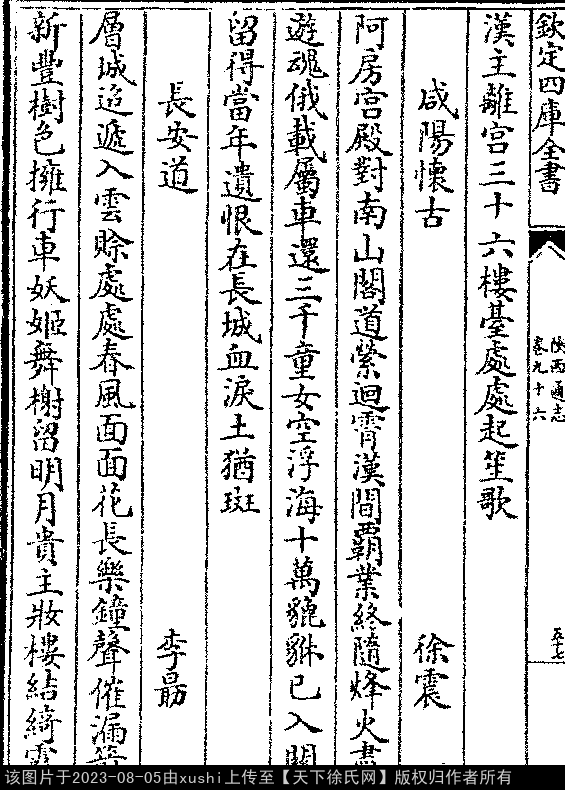 欽定四庫全書
陜西通志
卷九十六
五十七
漢主離宫三十六樓臺處處起笙歌
咸陽懷古
徐震
阿房宫殿對南山閣道縈迴霄漢間覇業終隨烽火盡
遊魂俄載屬車還三千童女空浮海十萬貔貅已入關
留得當年遺恨在長城血淚土猶斑
長安道
李勗
層城迢遞入雲賒處處春風面面花長樂鐘聲催漏箭
新豐樹色擁行車妖姬舞榭留明月貴主妝樓結綺霞
该图片于2023-08-05由xushi上传至【天下徐氏网】版权归作者所有